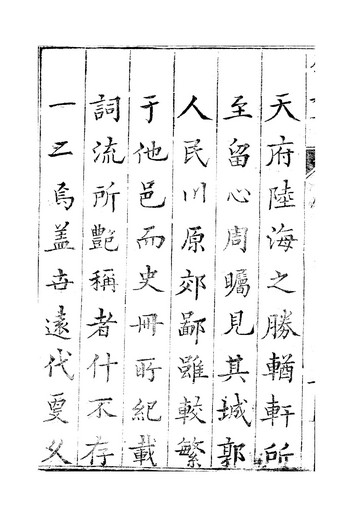 天府陸海之勝輶軒所
至留心周矚見其城郭
人民川原郊鄙雖較繁
于他邑而史冊所紀載
詞流所艷稱者什不存
一二焉盖世遠代更久